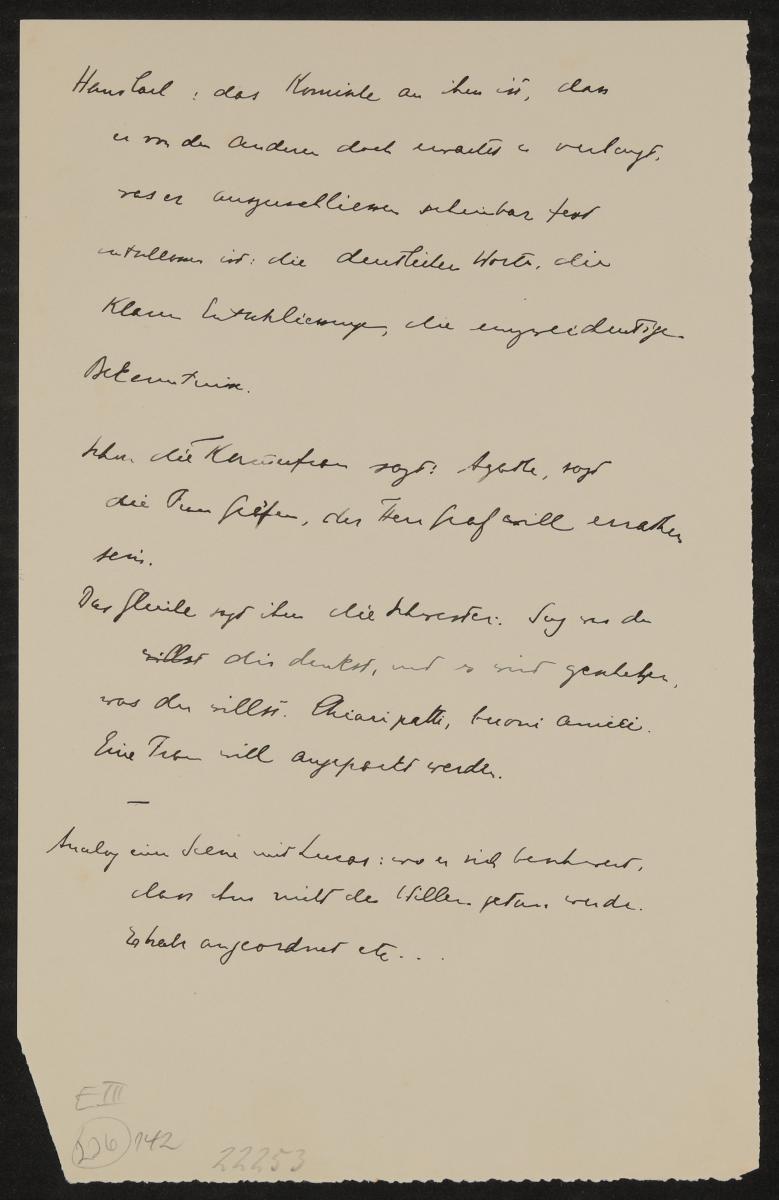 Hans Carl: das Komische an ihm ist, dass
er von den anderen doch erwartet u verlangt,
was er auszuschliessen scheinbar fest
entschlossen ist: die deutlichen Worte, die
klaren Entschliessungen, die unzweideutigen
Bekenntnisse.
Schon die Kammerfrau sagt: Agathe, sagt
die Frau Gräfin, der Herr Graf will errathen
sein.
Das Gleiche sagt ihm die Schwester: Sag was du
willst dir denkst, und es wird geschehen,
was du willst. Chiari patti, buoni amici.
Eine Frau will angepackt werden.
—
Analog eine Scene mit Lucas: wo er sich beschwert,
dass ihm nicht der Willen getan werde.
Er habe angeordnet etc...
E III
226 142
22253